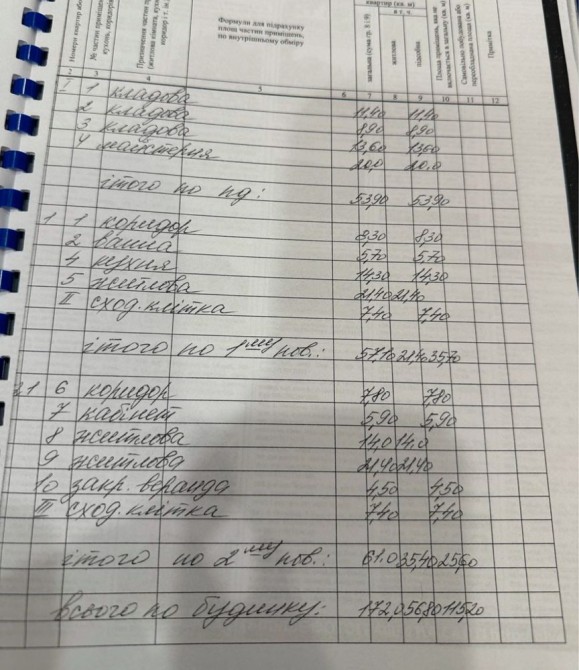 Номери квартир або
№ частин приміщень
Призначення частин
Формули для підрахунку
площ частин приміщень,
по внутрішньому обміру
квартир (кв. м)
в т. ч.
загальна (сума гр. 8 і 9)
житлова
підсобна
Площа приміщень, яка не
включається в загальну (кв. м)
Самовільно побудована або
переобладнана площа (кв. м)
Примітка
2 3 4 5 6 7 8 9 10 11 12
I 1 кладова 11,40 11,40
2 кладова 8,90 8,90
3 кладова 13,60 13,60
4 майстерня 20,0 20.0
ітого по пд: 53,90 53,90
1 1 коридор 8,30 8,30
2 ванна 5,70 5,70
4 кухня 14,30 14,30
5 житлова 21,40 21,40
II сход. клітка 7,40 7,40
ітого по 1му пов.: 57,10 21,40 35,70
21 6 коридор 7,80 7,80
7 кабінет 5,90 5,90
8 житлова 14,0 14.0
9 житлова 21,40 21,40
10 закр. веранда 4,50 4,50
III сход. клітка 7,40 7,40
ітого по 2му пов.: 61.0 35,40 25,60
всього по будинку: 172,0 56,80 115,20